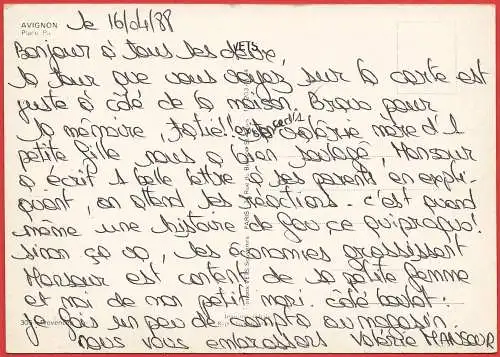 AVIGNON
le 16/04/88
Bonjour à tous les deux,
la tour que vous voyez sur la carte est
juste à côté de la maison. Bravo pour
la mémoire, Valérie mère d'1
petite fille nous a bien soulagé, Mansour
a écrit 1 belle lettre à ses parents en expli-
quant, on attend les réactions. c'est quand
même une histoire de fou ce quiproquo!
sinon ça va, les économies grossissent
Mansour est content de sa petite femme
et moi de mon petit mari. côté boulot:
je fais un peu de compta au magasin.
nous vous embrassons Valérie MANSOUR